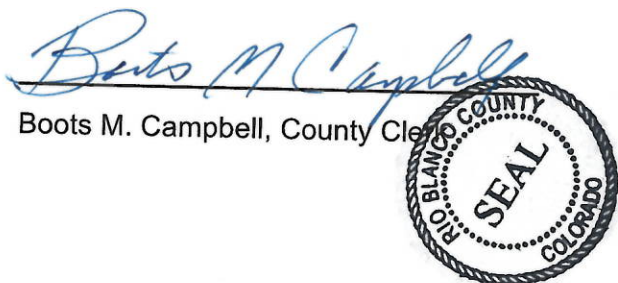 Boots M Campbell
Boots M. Campbell, County Clerk
RIO BLANCO COUNTY
SEAL
COLORADO